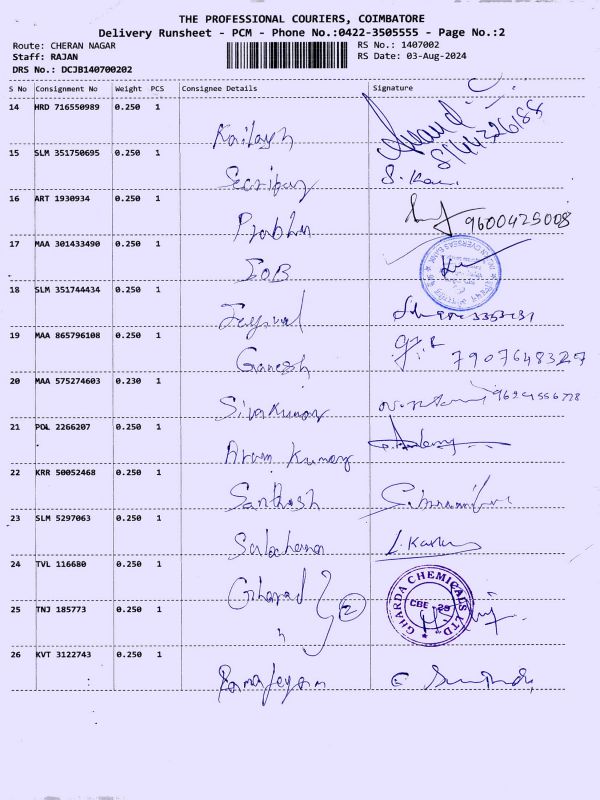 THE PROFESSIONAL COURIERS, COIMBATORE
Delivery Runsheet - PCM - Phone No.:0422-3505555 - Page No.:2
Route: CHERAN NAGAR
Staff: RAJAN
DRS No.: DCJB140700202
RS No.: 1407002
RS Date: 03-Aug-2024
S No Consignment No Weight PCS Consignee Details Signature
14 HRD 716550989 0.250 1 Kailash
15 SLM 351750695 0.250 1
16 ART 1930934 0.250 1 Prabhu 9600425008
17 MAA 301433490 0.250 1 IOB
18 SLM 351744434 0.250 1
19 MAA 865796108 0.250 1 Ganesh 7907648327
20 MAA 575274603 0.230 1 Sivakumar
21 POL 2266207 0.250 1 Arun Kumar
22 KRR 50052468 0.250 1 Santhosh
23 SLM 5297063 0.250 1 Sulochana
24 TVL 116680 0.250 1 Gharad
GHARDA CHEMICALS LTD
25 TNJ 185773 0.250 1 〃 2
26 KVT 3122743 0.250 1 Ramajeyam